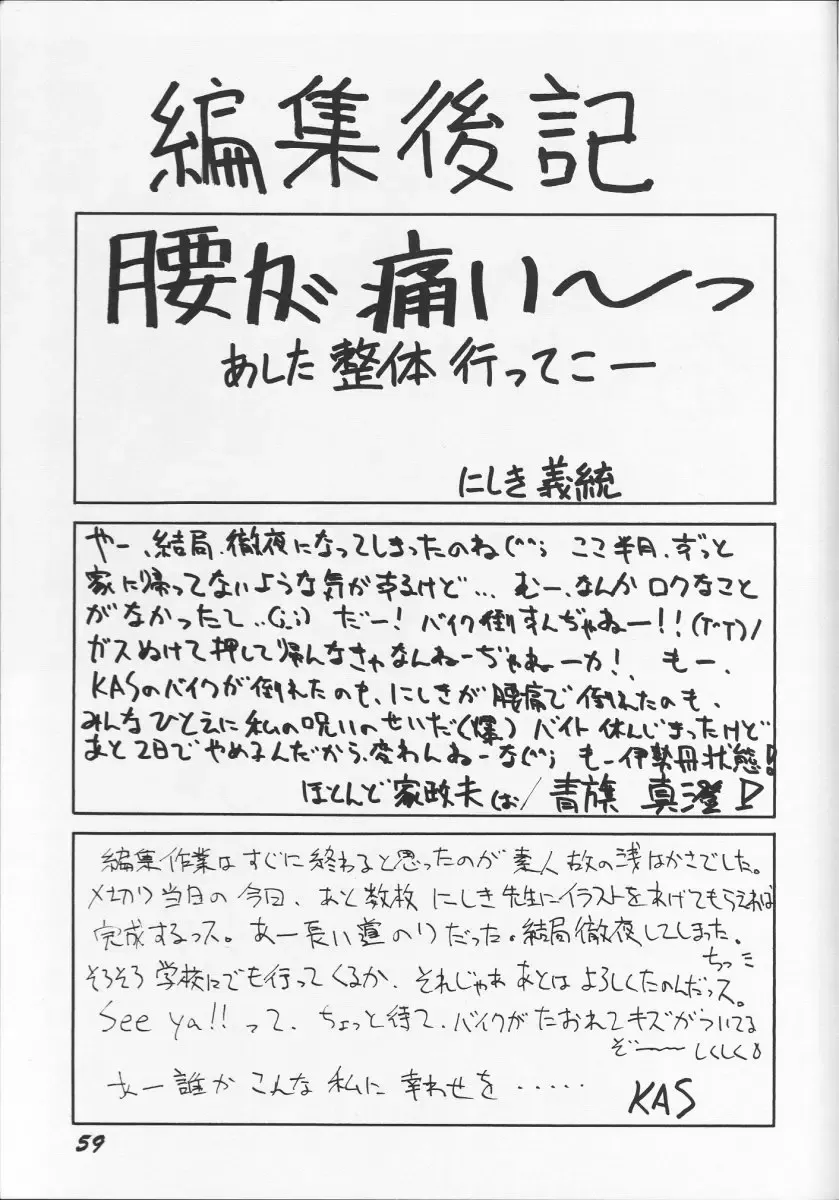 編集後記
腰が痛い〜っ
あした整体行ってこー
にしき義統
やー、結局、徹夜になってしまったのね(^^; ここ半月、ずっと
家に帰ってないような気がするけど… むー、なんかロクなこと
がなかったて‥(;.;) だー! バイク倒すんぢゃねー!!(T^T)ノ
ガスぬけて押して帰んなきゃなんねーぢゃねーカ! もー、
KASのバイクが倒れたのも、にしきが腰痛で倒れたのも、
みんなひとえに私の呪いのせいだ(爆) バイト休んじまったけど
あと2日でやめるんだから、変わんねーな(^^; もー伊勢丹状態!
ほとんど家政夫(お/青旗 真澄
編集作業はすぐに終わると思ったのが素人故の浅はかさでした。
〆切り当日の今日、あと数枚にしき先生にイラストをあげてもらえれば
完成するっス。あー長い道のりだった。結局徹夜してしまった。
ちっミ
そろそろ学校にでも行ってくるか、それじゃあ あとは よろしくたのんだっス。
See ya!! って、ちょっと待て、バイクがたおれてキズがついてる
ぞ〜〜 しくしく
あー誰かこんな私に幸わせを・・・・・
KAS
59